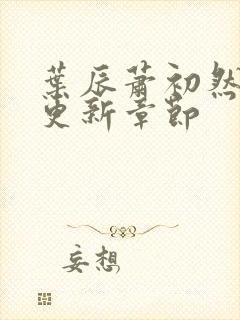 葉辰蕭初然
更新章節
妄想